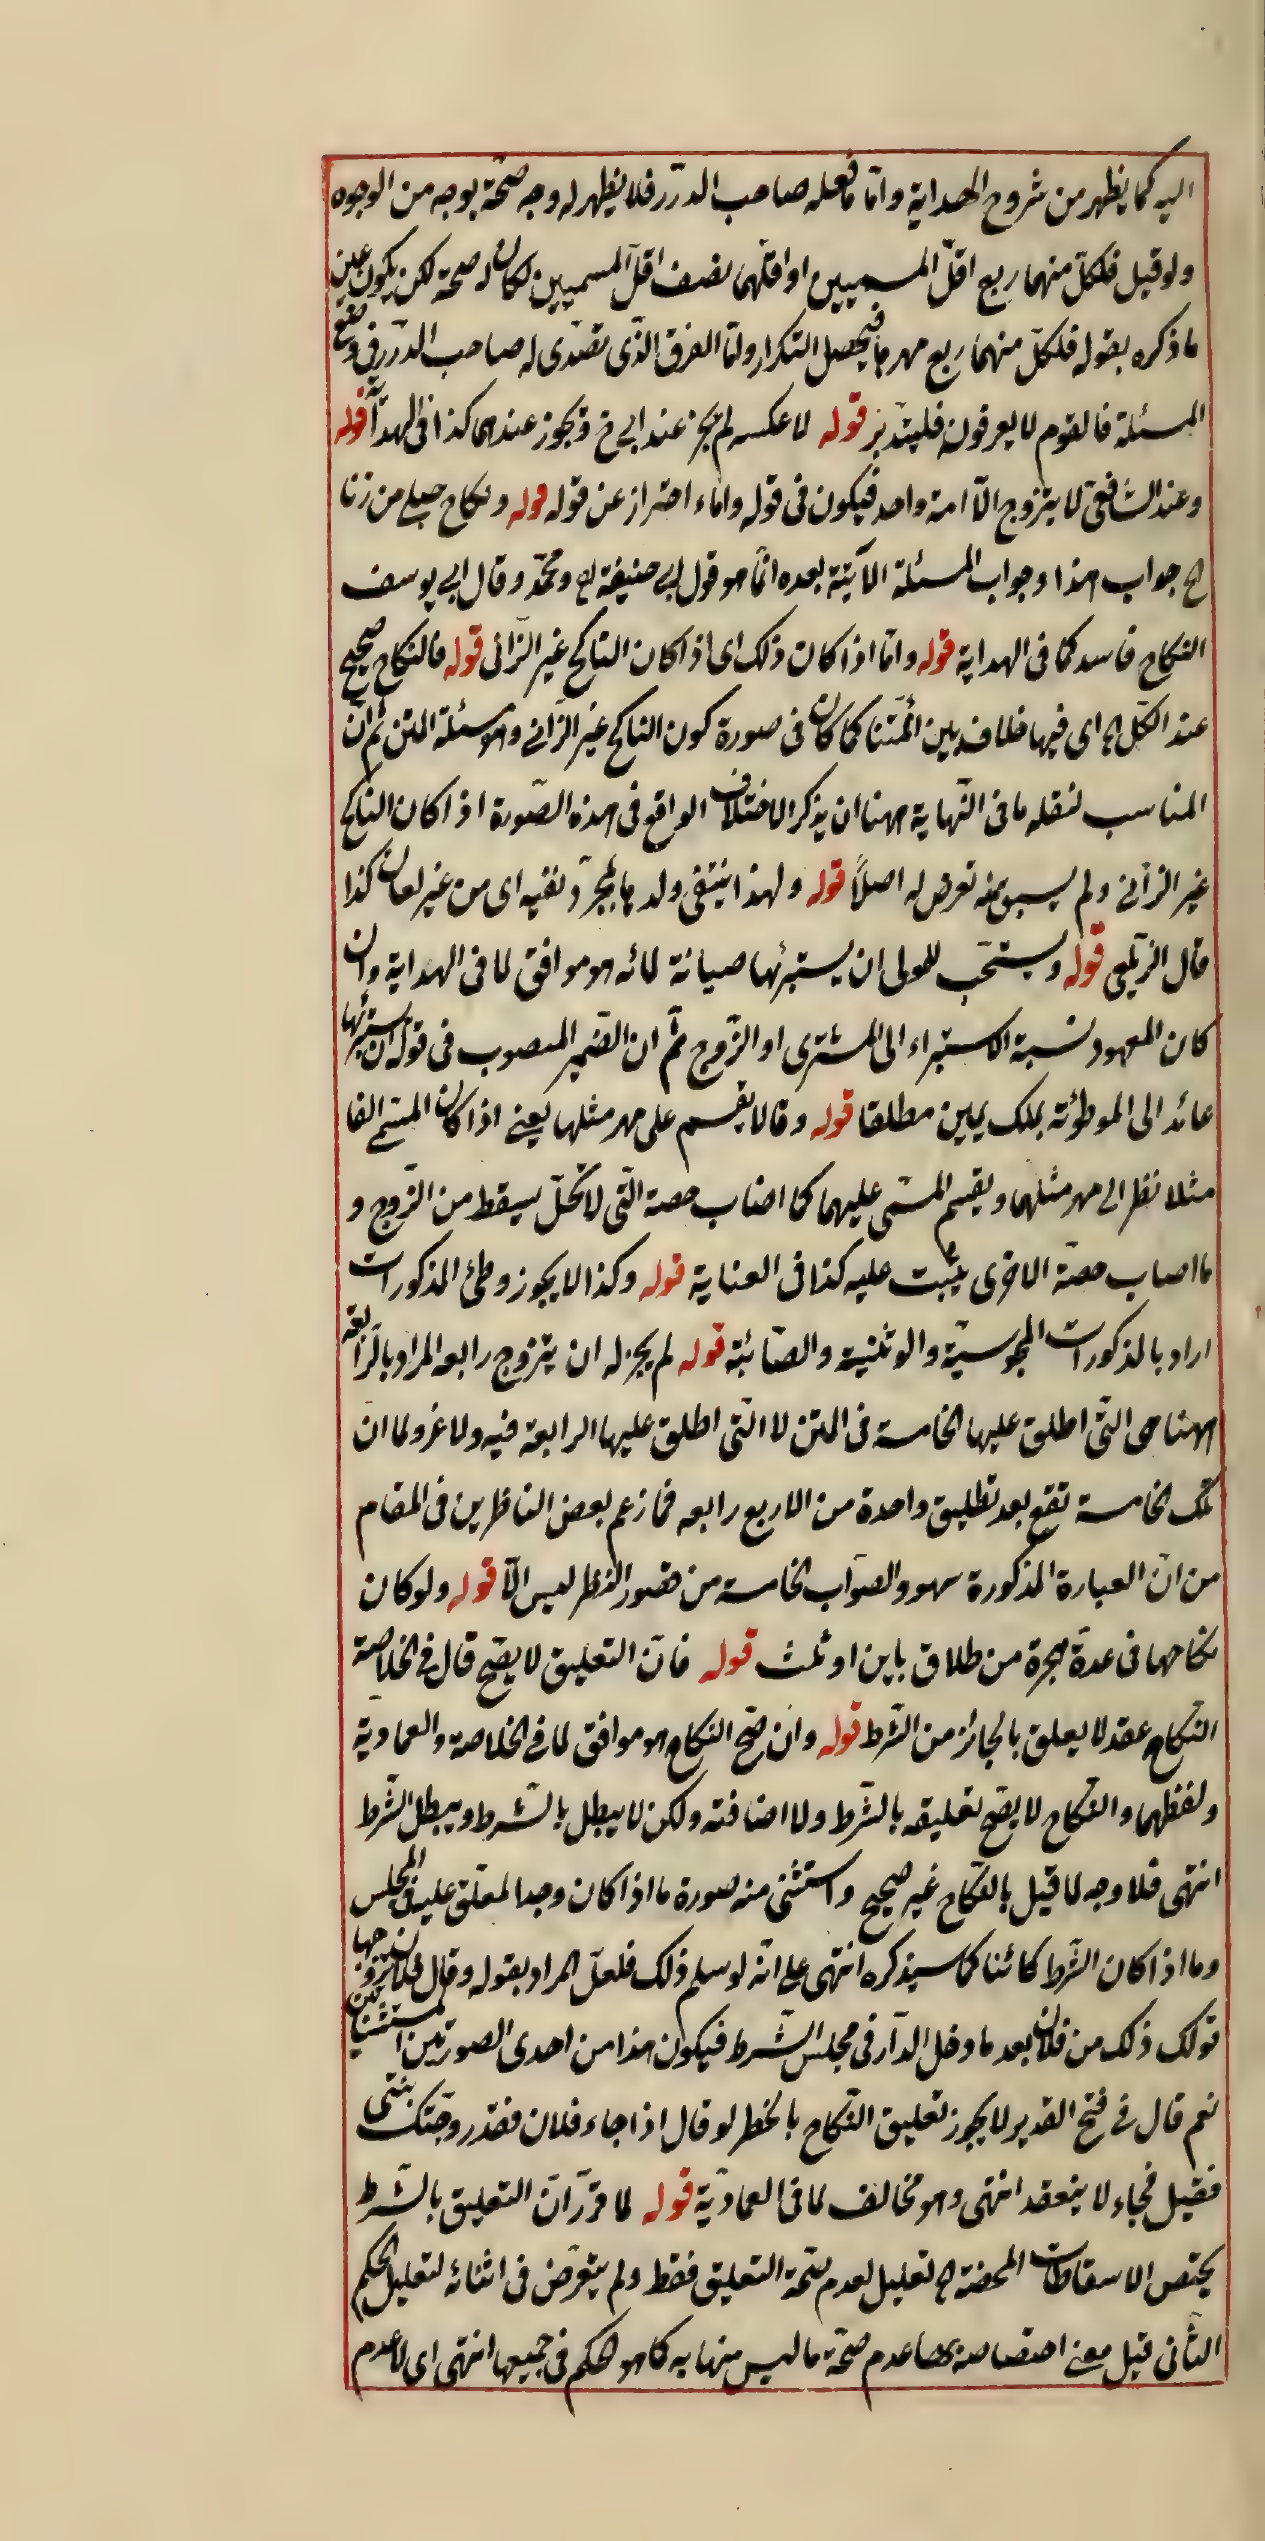 اليه كما يظهر من شروح الهداية واما ما فعله صاحب الدرر فلا يظهر له وجه صحة بوجه من الوجوه
ولو قيل فلكل منهما ربع اقل المسميين او اقلهما نصف اقل المسميين لكان له صحة لكن يكون عين
ما ذكره بقوله فلكل منهما ربع مهرها فيحصل التكرار واما الفرق الذى تصدى له صاحب الدرر فى وضع
المسئلة فالقوم لا يعرفونه فليتدبر قوله لا عكسه لم يجز عند ابى ح ويجوز عندهما كذا فى الهداية قوله
وعند الشافعى لا يتزوج الا امة واحد فيكون فى قوله واماء احتراز عن قوله قوله ونكاح حبلى من زنا
الخ جواب هذا وجواب المسئلة الآتية بعده انما هو قول ابى حنيفة رح ومحمد وقال ابى يوسف
النكاح فاسد كما فى الهداية قوله واما اذا كان ذلك اى اذا كان الناكح غير الزانى قوله فالنكاح صحيح
عند الكل الخ اى فيها خلاف بين ائمتنا كما كان فى صورة كون الناكح غير الزانى وهو مسئلة المتن ثم ان
المناسب لنقله ما فى النهاية ههنا ان يذكر الاختلاف الواقع فى هذه الصورة اذا كان الناكح
غير الزانى ولم يسبق منه تعرض له اصلا قوله ولهذا ينتفى ولدها بمجرد نفيه اى من غير لعان كذا
قال الزيلعى قوله ويستحب للمولى ان يستبرئها صيانة لمائه هو موافق لما فى الهداية وان
كان المعهود نسبة الاستبراء الى المشترى او الزوج ثم ان الضمير المنصوب فى قوله ان يستبرئها
عائد الى الموطوئة بملك يمين مطلقا قوله وقالا يقسم على مهر مثلها يعنى اذا كان المسمى الفا
مثلا نظر الى مهر مثلهما ويقسم المسمى عليهما كما اصاب حصة التى لا تحل يسقط من الزوج و
ما اصاب حصة الاخرى يثبت عليه كذا فى العناية قوله وكذا لا يجوز وطئ المذكورات
اراد بالمذكورات المجوسية والوثنية والصائبة قوله لم يجز له ان يتزوج رابعه المراد بالرابعة
ههنا هى التى اطلق عليها الخامسة فى المتن لا التى اطلق عليها الرابعة فيه ولا غرو لما ان
تلك الخامسة تقع بعد تطليق واحدة من الاربع رابعه فما زعم بعض الناظرين فى المقام
من ان العبارة المذكورة سهو والصواب الخامسة من قصور النظر ليس الا قوله ولو كان
نكاحها فى عدة الحرة من طلاق باين او ثلث قوله فان التعليق لا يصح قال فى الخلاصة
النكاح عقد لا يعلق بالجائز من الشرط قوله وان صح النكاح هو موافق لما فى الخلاصة والعمادية
ولفظهما والنكاح لا يصح تعليقه بالشرط ولا اضافته ولكن لا يبطل بالشرط ويبطل الشرط
انتهى فلا وجه لما قيل بالنكاح غير صحيح واستثنى منه صورة ما اذا كان وجد المعلق عليه فى المجلس
وما اذا كان الشرط كائنا كما سيذكره انتهى على انه لو سلم ذلك فلعل المراد بقوله وقال فلان تزوجها
قولك ذلك من فلان بعد ما دخل الدار فى مجلس الشرط فيكون هذا من احدى الصورتين المستثنيتين
نعم قال فى فتح القدير لا يجوز تعليق النكاح بالخطر لو قال اذا جاء فلان فقد زوجتك بنتى
فقيل فجاء لا ينعقد انتهى وهو مخالف لما فى العمادية قوله لما تقرر ان التعليق بالشرط
يختص الاسقاطات المحضة الخ تعليل لعدم صحة التعليق فقط ولم يتعرض فى اثنائه لتعليل الحكم
الثانى قيل معنى اختصاصه بها عدم صحة ما ليس منها به كما هو الحكم فى جميعها انتهى اى لا عدم